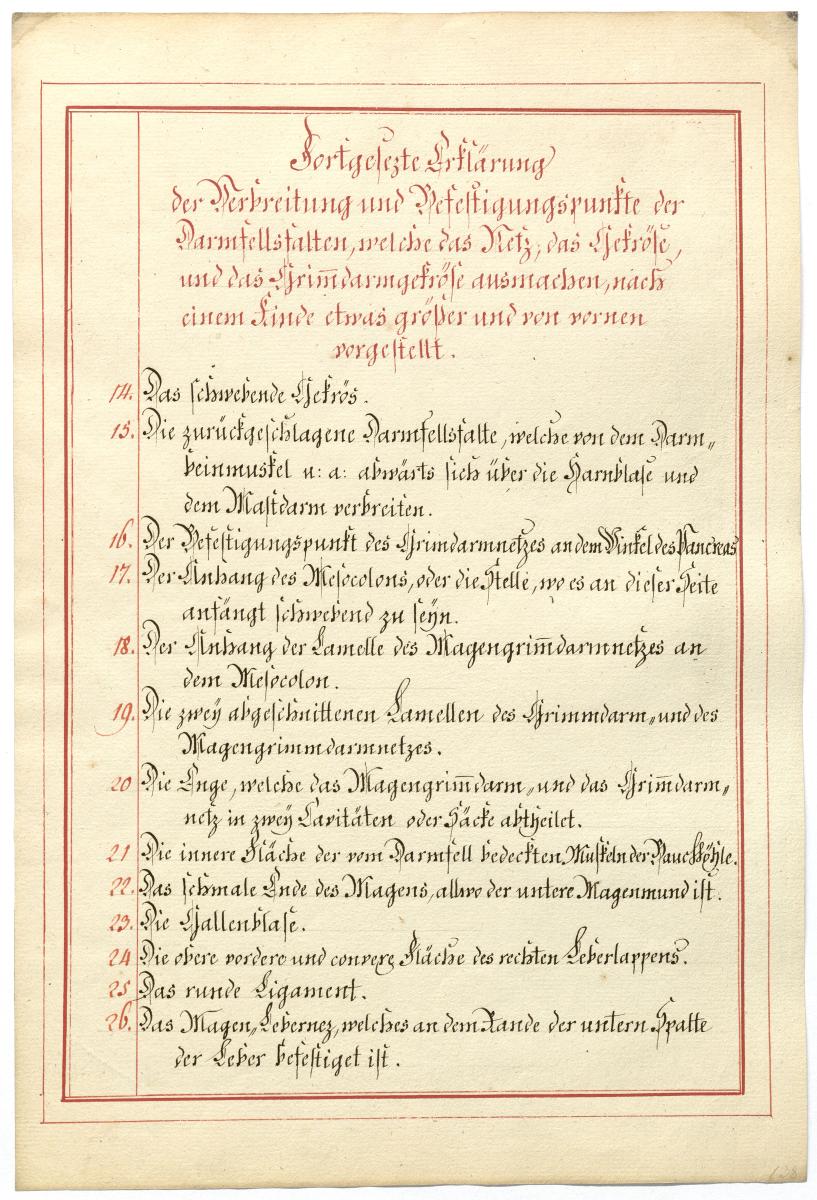 Fortgesezte Erklärung
der Verbreitung und Befestigungspunkte der
Darmfellsfalten, welche das Netz, das Gekröse,
und das Grim̅darmgekröse ausmachen, nach
einem Kinde etwas größer und von vornen
vorgestellt.
14. Das schwebende Gekrös.
15. Die zurückgeschlagene Darmfellsfalte, welche von dem Darm„
beinmuskel u: a: abwärts sich über die Harnblase und
dem Mastdarm verbreiten.
16. Der Befestigungspunkt des Grimdarmnetzes an dem Winkel des Pancreas
17. Der Anhang des Mesocolons, oder die Stelle, wo es an dieser Seite
anfängt schwebend zu seÿn.
18. Der Anhang der Lamelle des Magengrim̅darmnetzes an
dem Mesocolon.
19. Die zweÿ abgeschnittenen Lamellen des Grimmdarm„und des
Magengrimmdarmnetzes.
20 Die Enge, welche das Magengrim̅darm„und das Grim̅darm„
netz in zweÿ Cavitäten oder Säcke abtheilet.
21 Die innere Fläche der vom Darmfell bedeckten Muskeln der Bauchhöhle.
22. Das schmale Ende des Magens, allwo der untere Magenmund ist.
23. Die Gallenblase.
24 Die obere vordere und convexe Fläche des rechten Leberlappens.
25 Das runde Ligament.
26. Das Magen„Lebernez, welches an dem Rande der untern Spalte
der Leber befestiget ist.
138